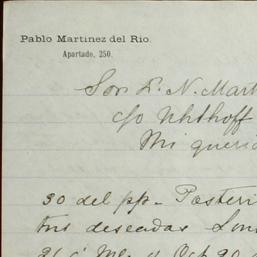 Pablo Martinez del Rio.
Apartado, 250.
Sor. P. N. Mart
c/o Uhthoff
Mi queri
30 del pp - Posteri
tus deseadas